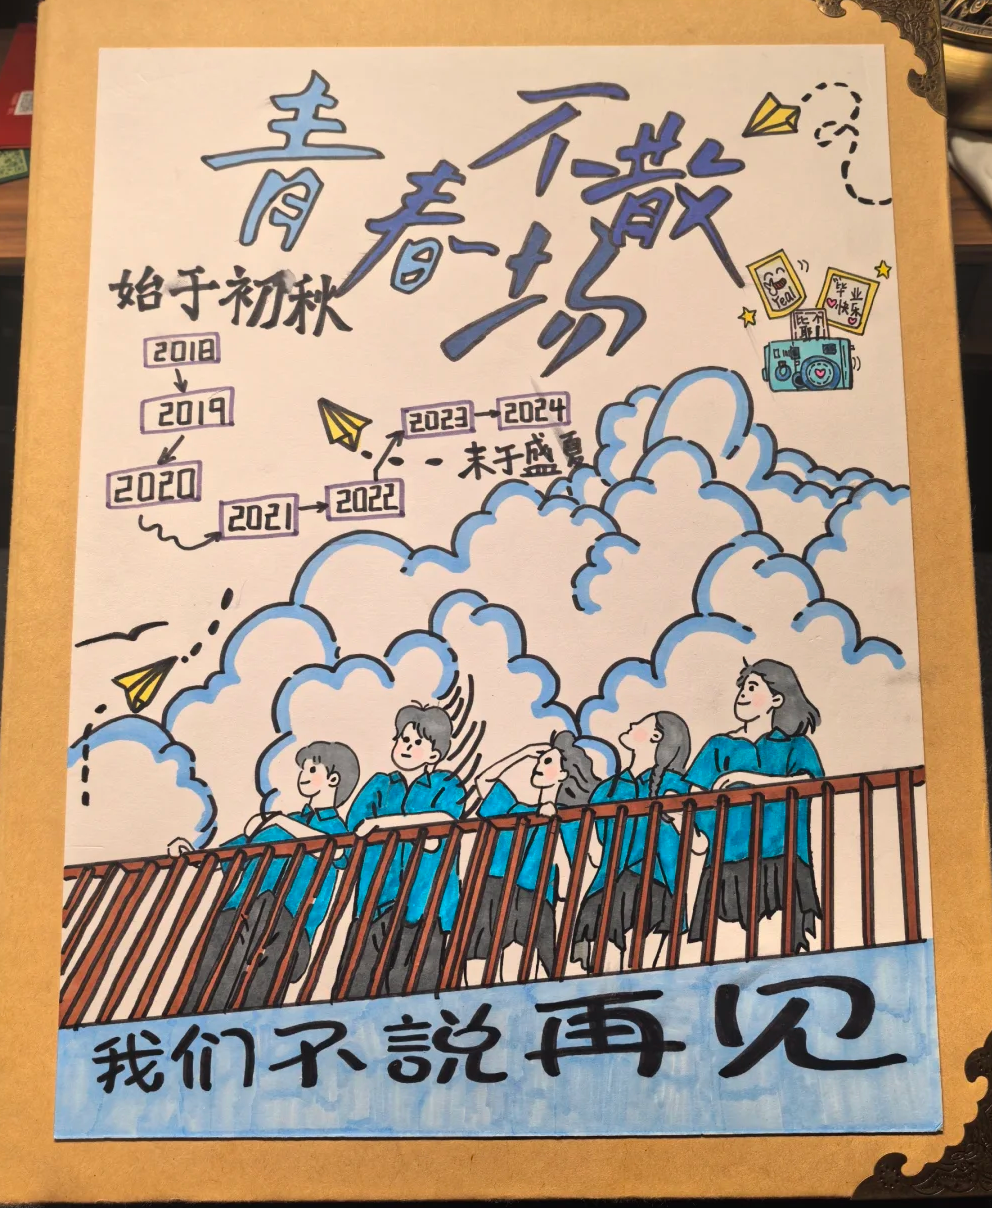 青春不散场
始于初秋
2018
2019
2020
2021
2022
2023
2024
末于盛夏
Yeah
毕业快乐
我们不説再见